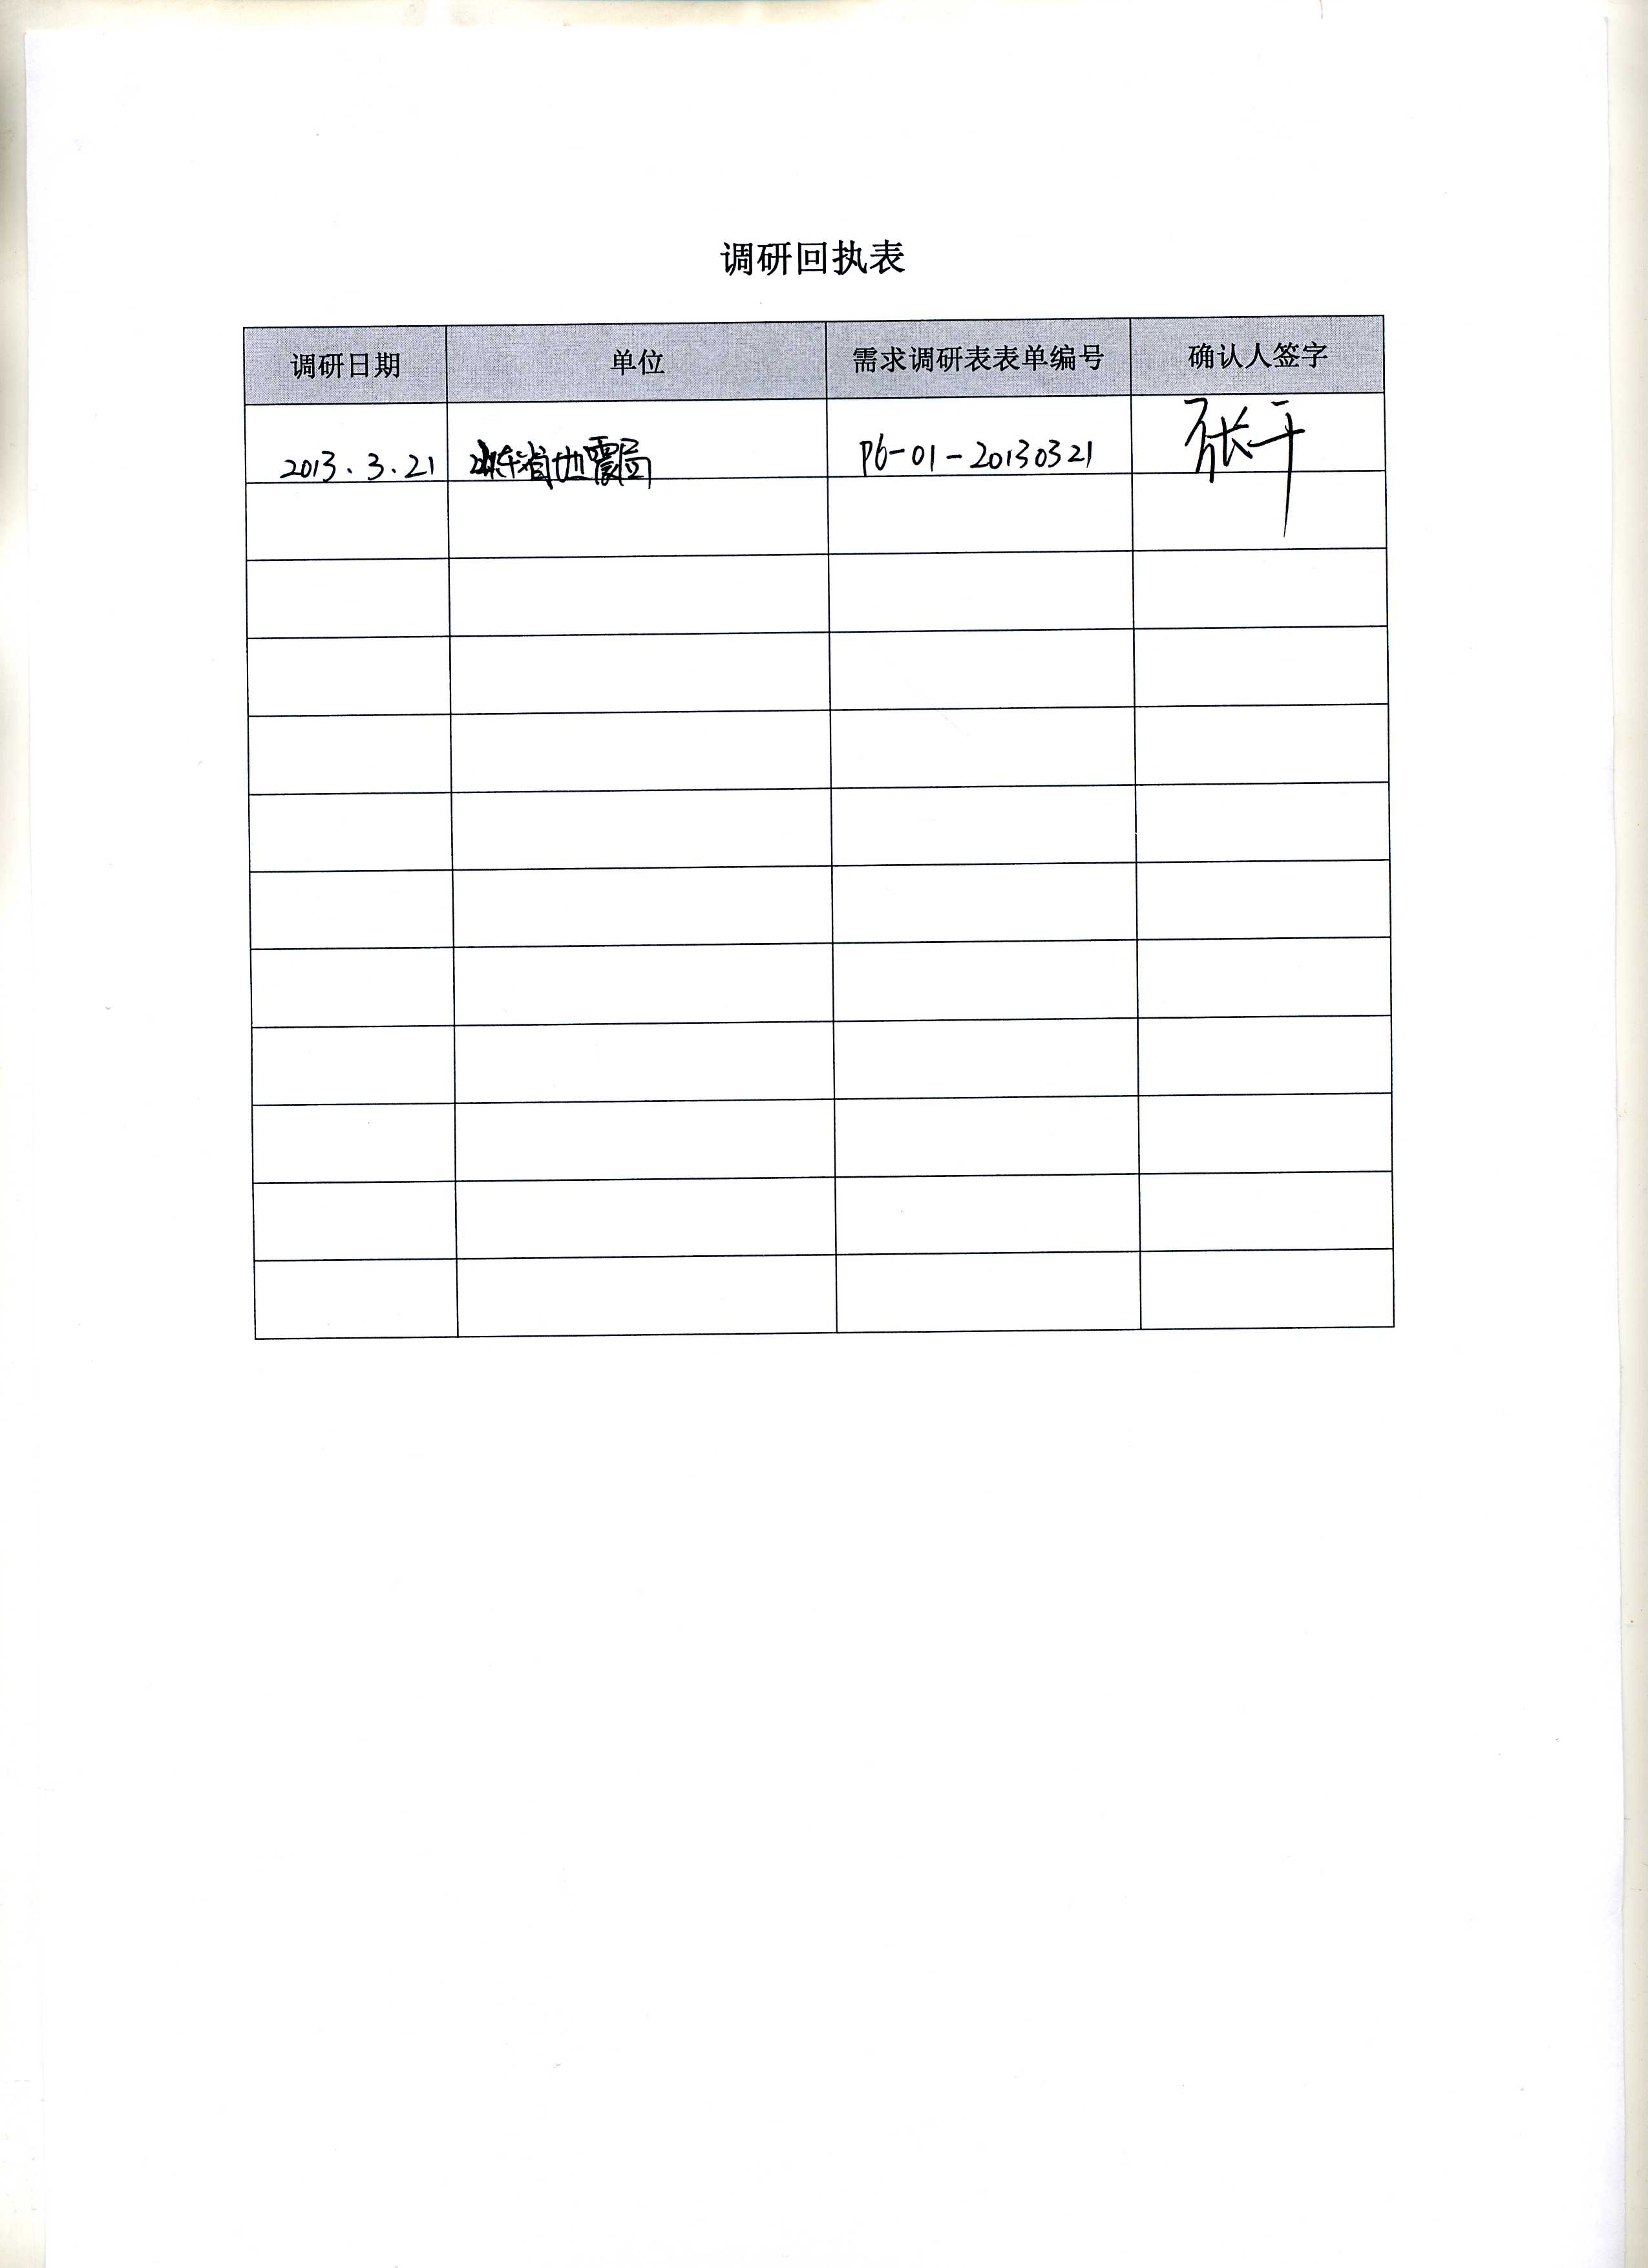 调研回执表
调研日期 单位 需求调研表表单编号 确认人签字
2013.3.21 山东省地震局 P6-01-20130321 张平